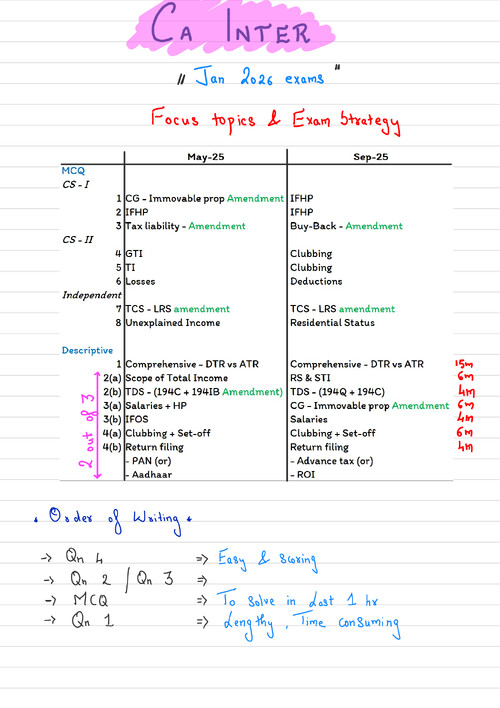 CA INTER
" Jan 2026 exams "
Focus topics & Exam Strategy
May-25 Sep-25
MCQ
CS - I
1 CG - Immovable prop Amendment IFHP
2 IFHP IFHP
3 Tax liability - Amendment Buy-Back - Amendment
CS - II
4 GTI Clubbing
5 TI Clubbing
6 Losses Deductions
Independent
7 TCS - LRS amendment TCS - LRS amendment
8 Unexplained Income Residential Status
Descriptive
1 Comprehensive - DTR vs ATR Comprehensive - DTR vs ATR 15m
2(a) Scope of Total Income RS & STI 6m
2(b) TDS - (194C + 194IB Amendment) TDS - (194Q + 194C) 4m
3(a) Salaries + HP CG - Immovable prop Amendment 6m
3(b) IFOS Salaries 4m
4(a) Clubbing + Set-off Clubbing + Set-off 6m
4(b) Return filing Return filing 4m
- PAN (or) - Advance tax (or)
- Aadhaar - ROI
2 out of 3
* Order of Writing *
-> Qn 4 => Easy & scoring
-> Qn 2 / Qn 3 =>
-> MCQ => To solve in Last 1 hr
-> Qn 1 => Lengthy, Time consuming